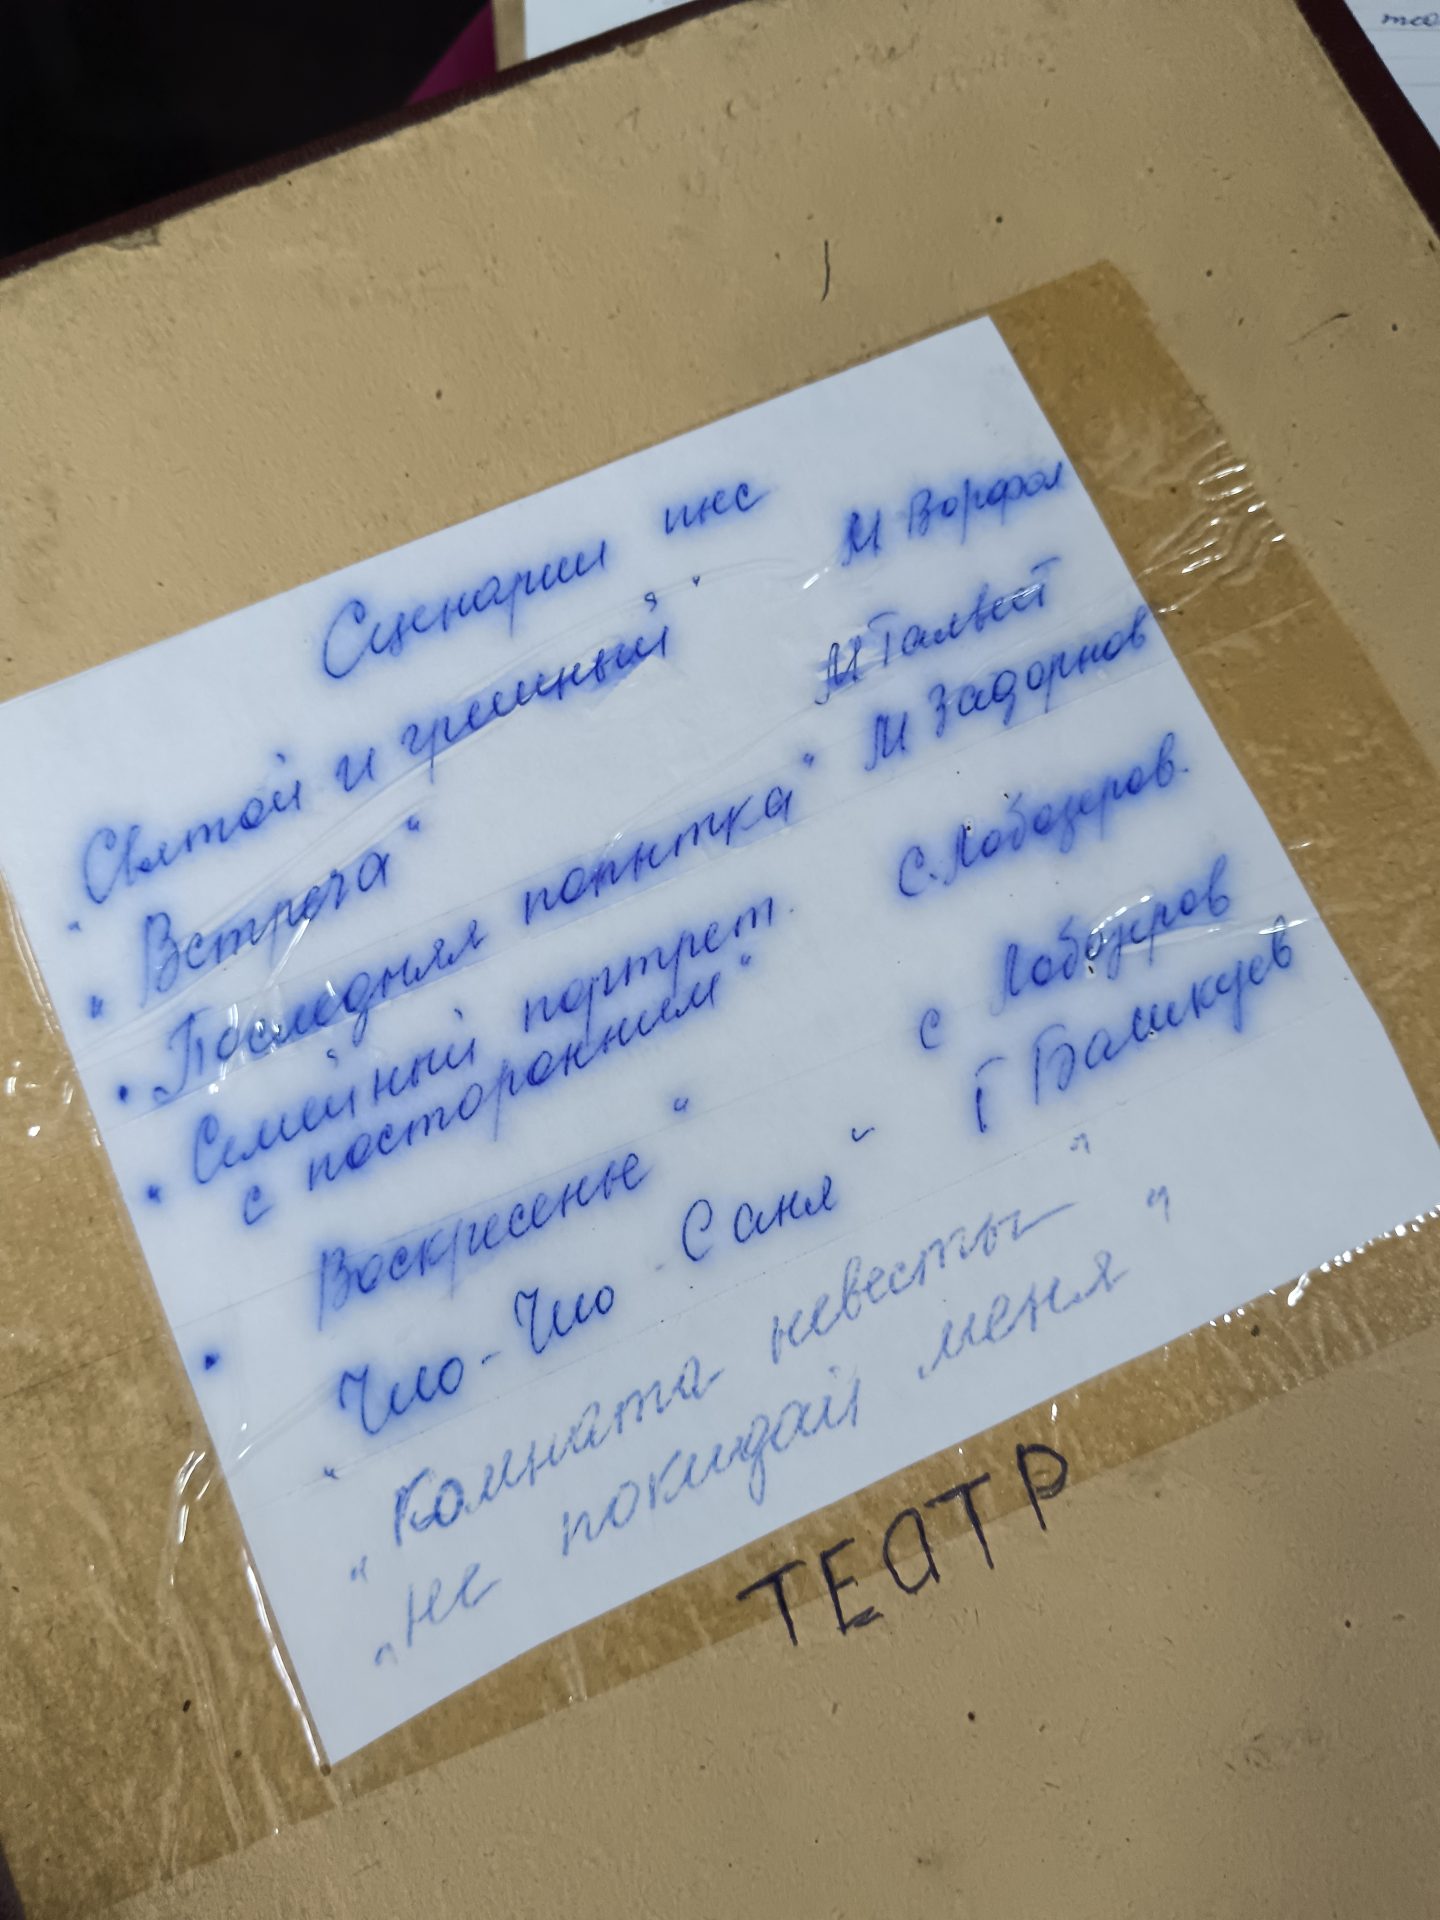 Сценарии пьес
"Святой и грешный" М Ворфол
"Встреча" М Талвест
"Последняя попытка" М Задорнов
"Семейный портрет С. Лобозеров.
с посторонним"
Воскресенье" С Лобозеров
"Чио-Чио Саня" Г Башкуев
"Комната невесты"
"не покидай меня"
ТЕАТР